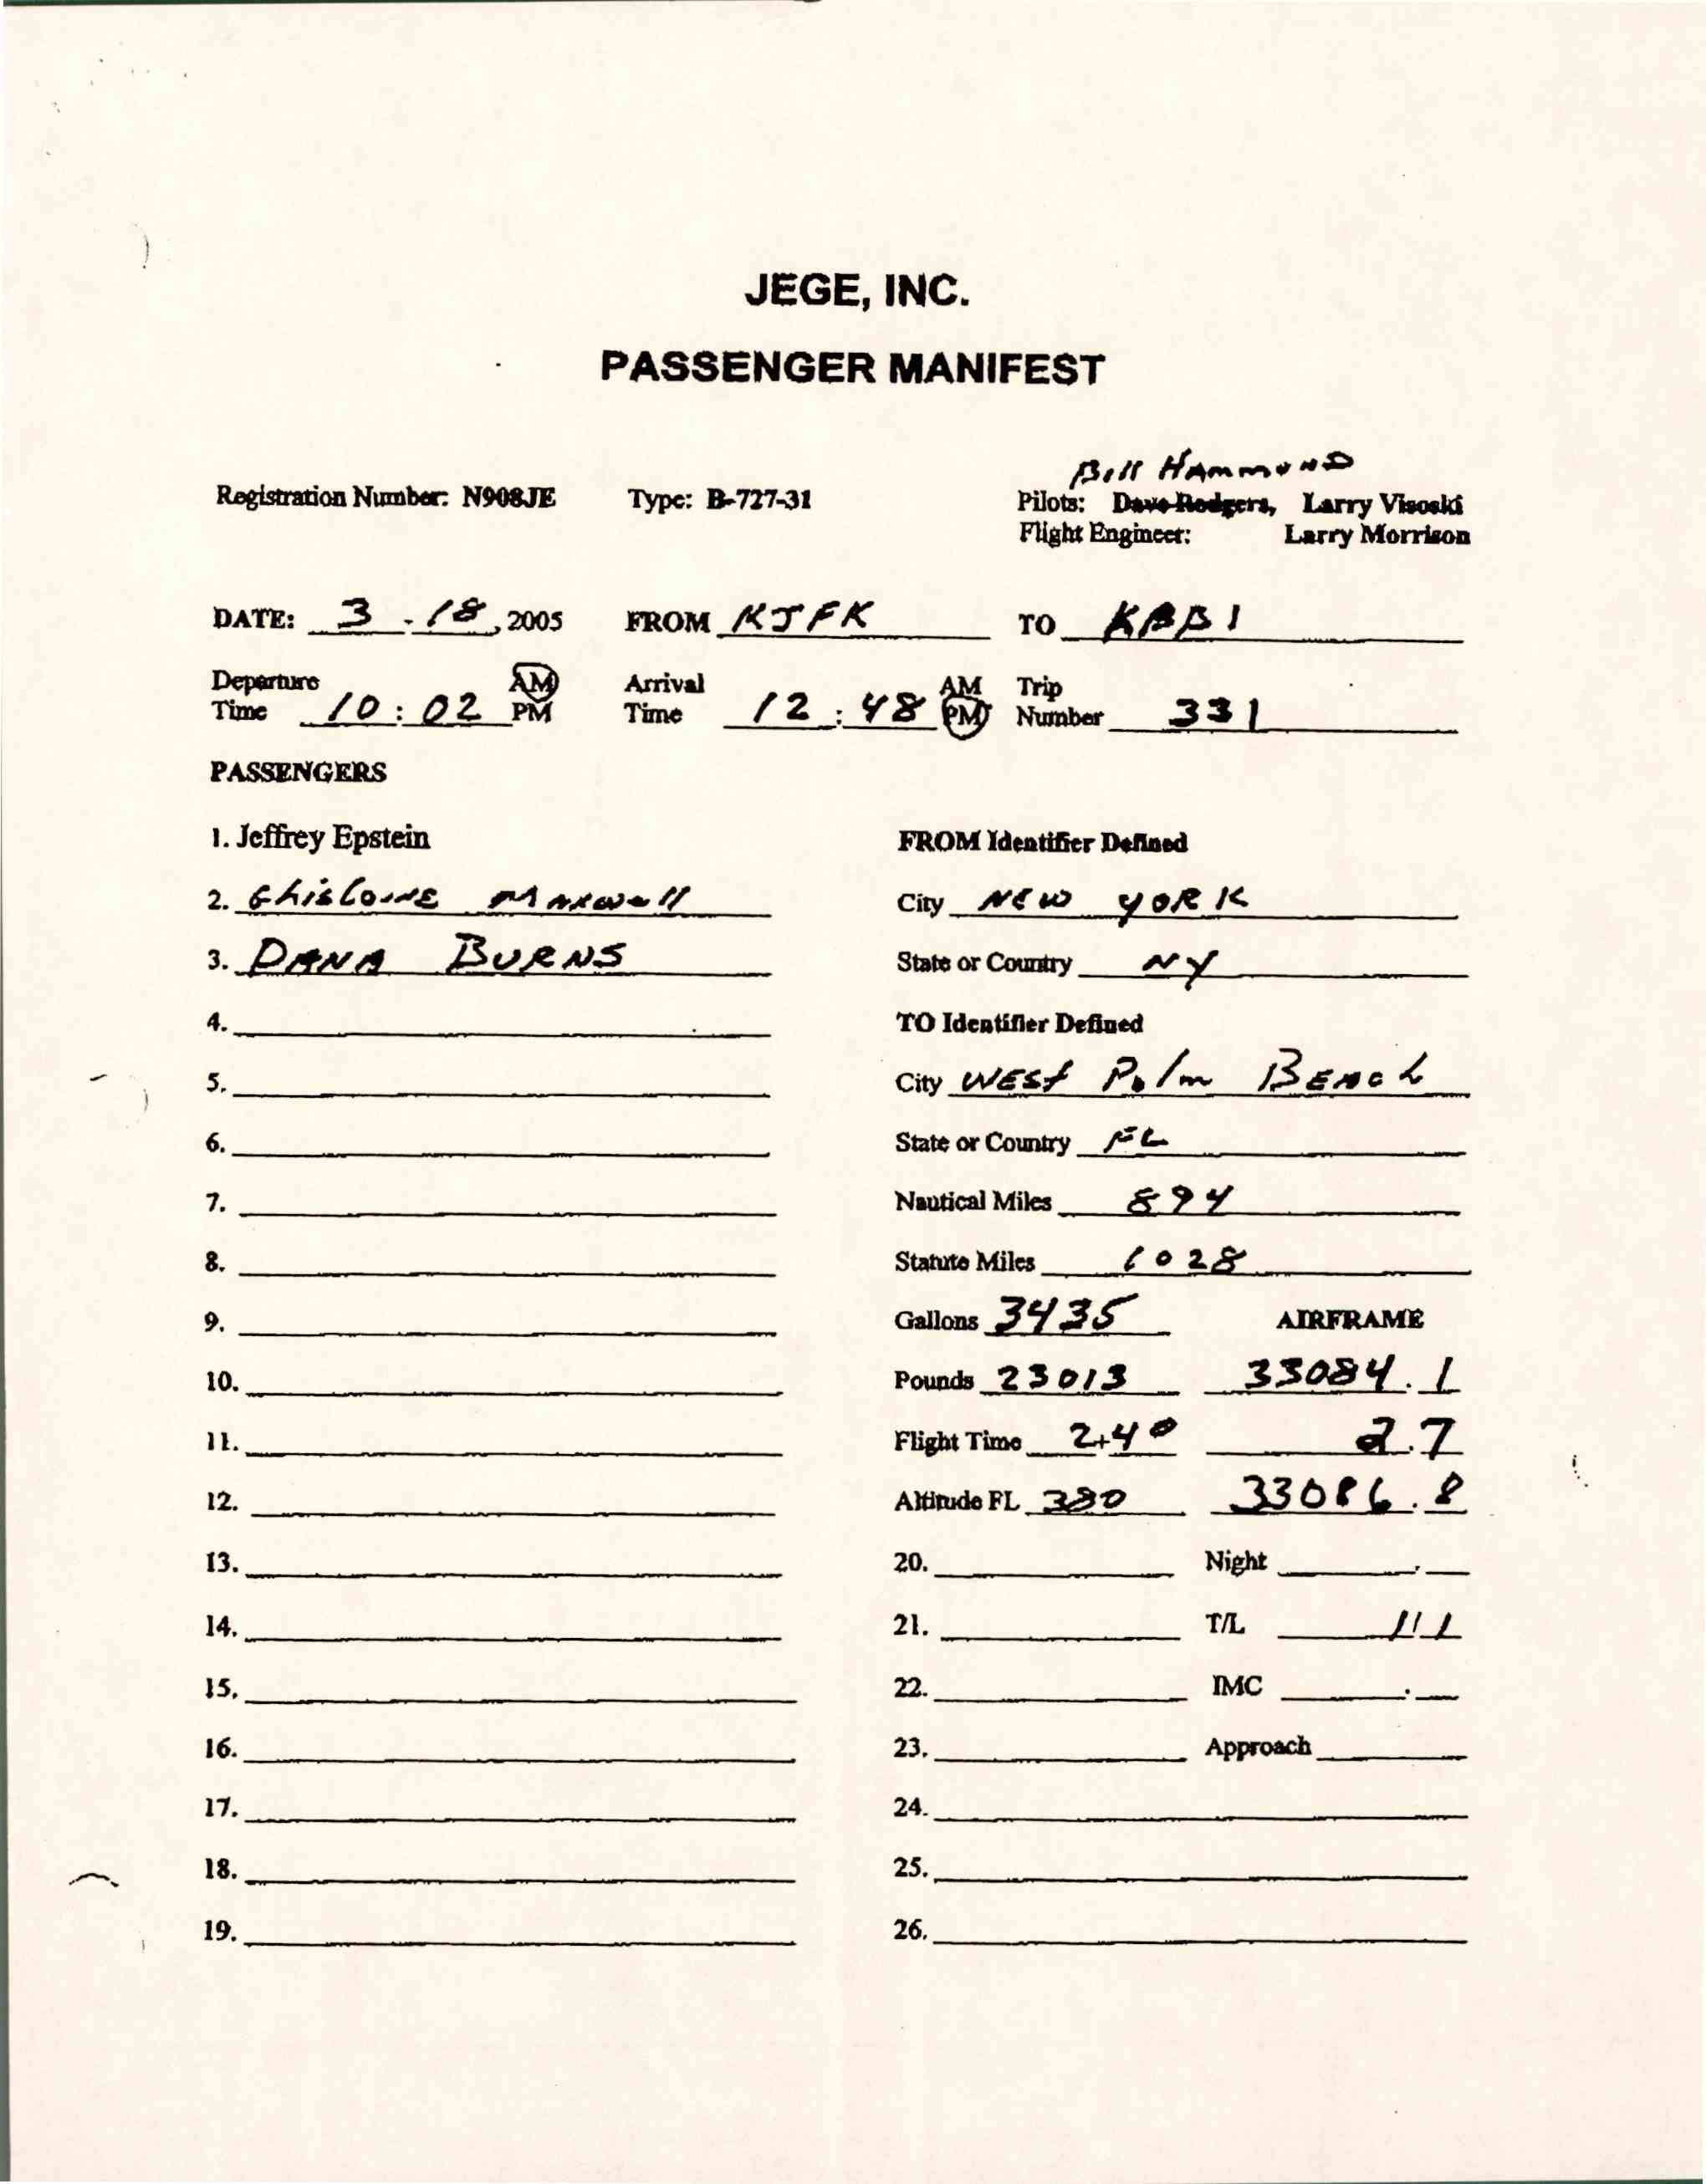 JEGE, INC.
PASSENGER MANIFEST
Bill Hammond
Registration Number: N908JE Type: B-727-31 Pilots: Dave Rodgers, Larry Visoski
Flight Engineer: Larry Morrison
DATE: 3 - 18, 2005 FROM KJFK TO KPBI
Departure AM Arrival AM Trip
Time 10:02 PM Time 12:48 PM Number 331
PASSENGERS
1. Jeffrey Epstein FROM Identifier Defined
2. Ghislaine Maxwell City NEW YORK
3. DANA BURNS State or Country NY
4. TO Identifier Defined
5. City WEST Palm BEACh
6. State or Country FL
7. Nautical Miles 894
8. Statute Miles 1028
9. Gallons 3435 AIRFRAME
10. Pounds 23013 33084.1
11. Flight Time 2+40 2.7
12. Altitude FL 380 33086.8
13. 20. Night .
14. 21. T/L 1/1
15. 22. IMC .
16. 23. Approach
17. 24.
18. 25.
19. 26.